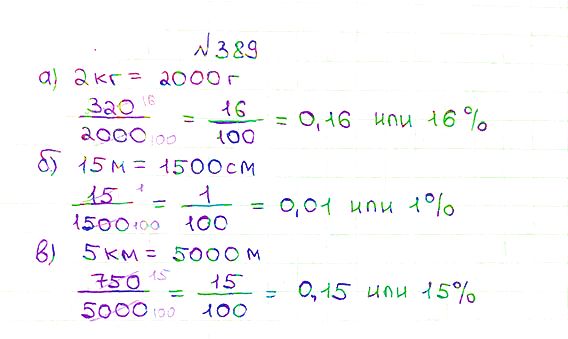 №389
а) 2кг = 2000г
320 16 / 2000 100 = 16 / 100 = 0,16 или 16%
б) 15м = 1500см
15 1 / 1500 100 = 1 / 100 = 0,01 или 1%
в) 5км = 5000м
750 15 / 5000 100 = 15 / 100 = 0,15 или 15%